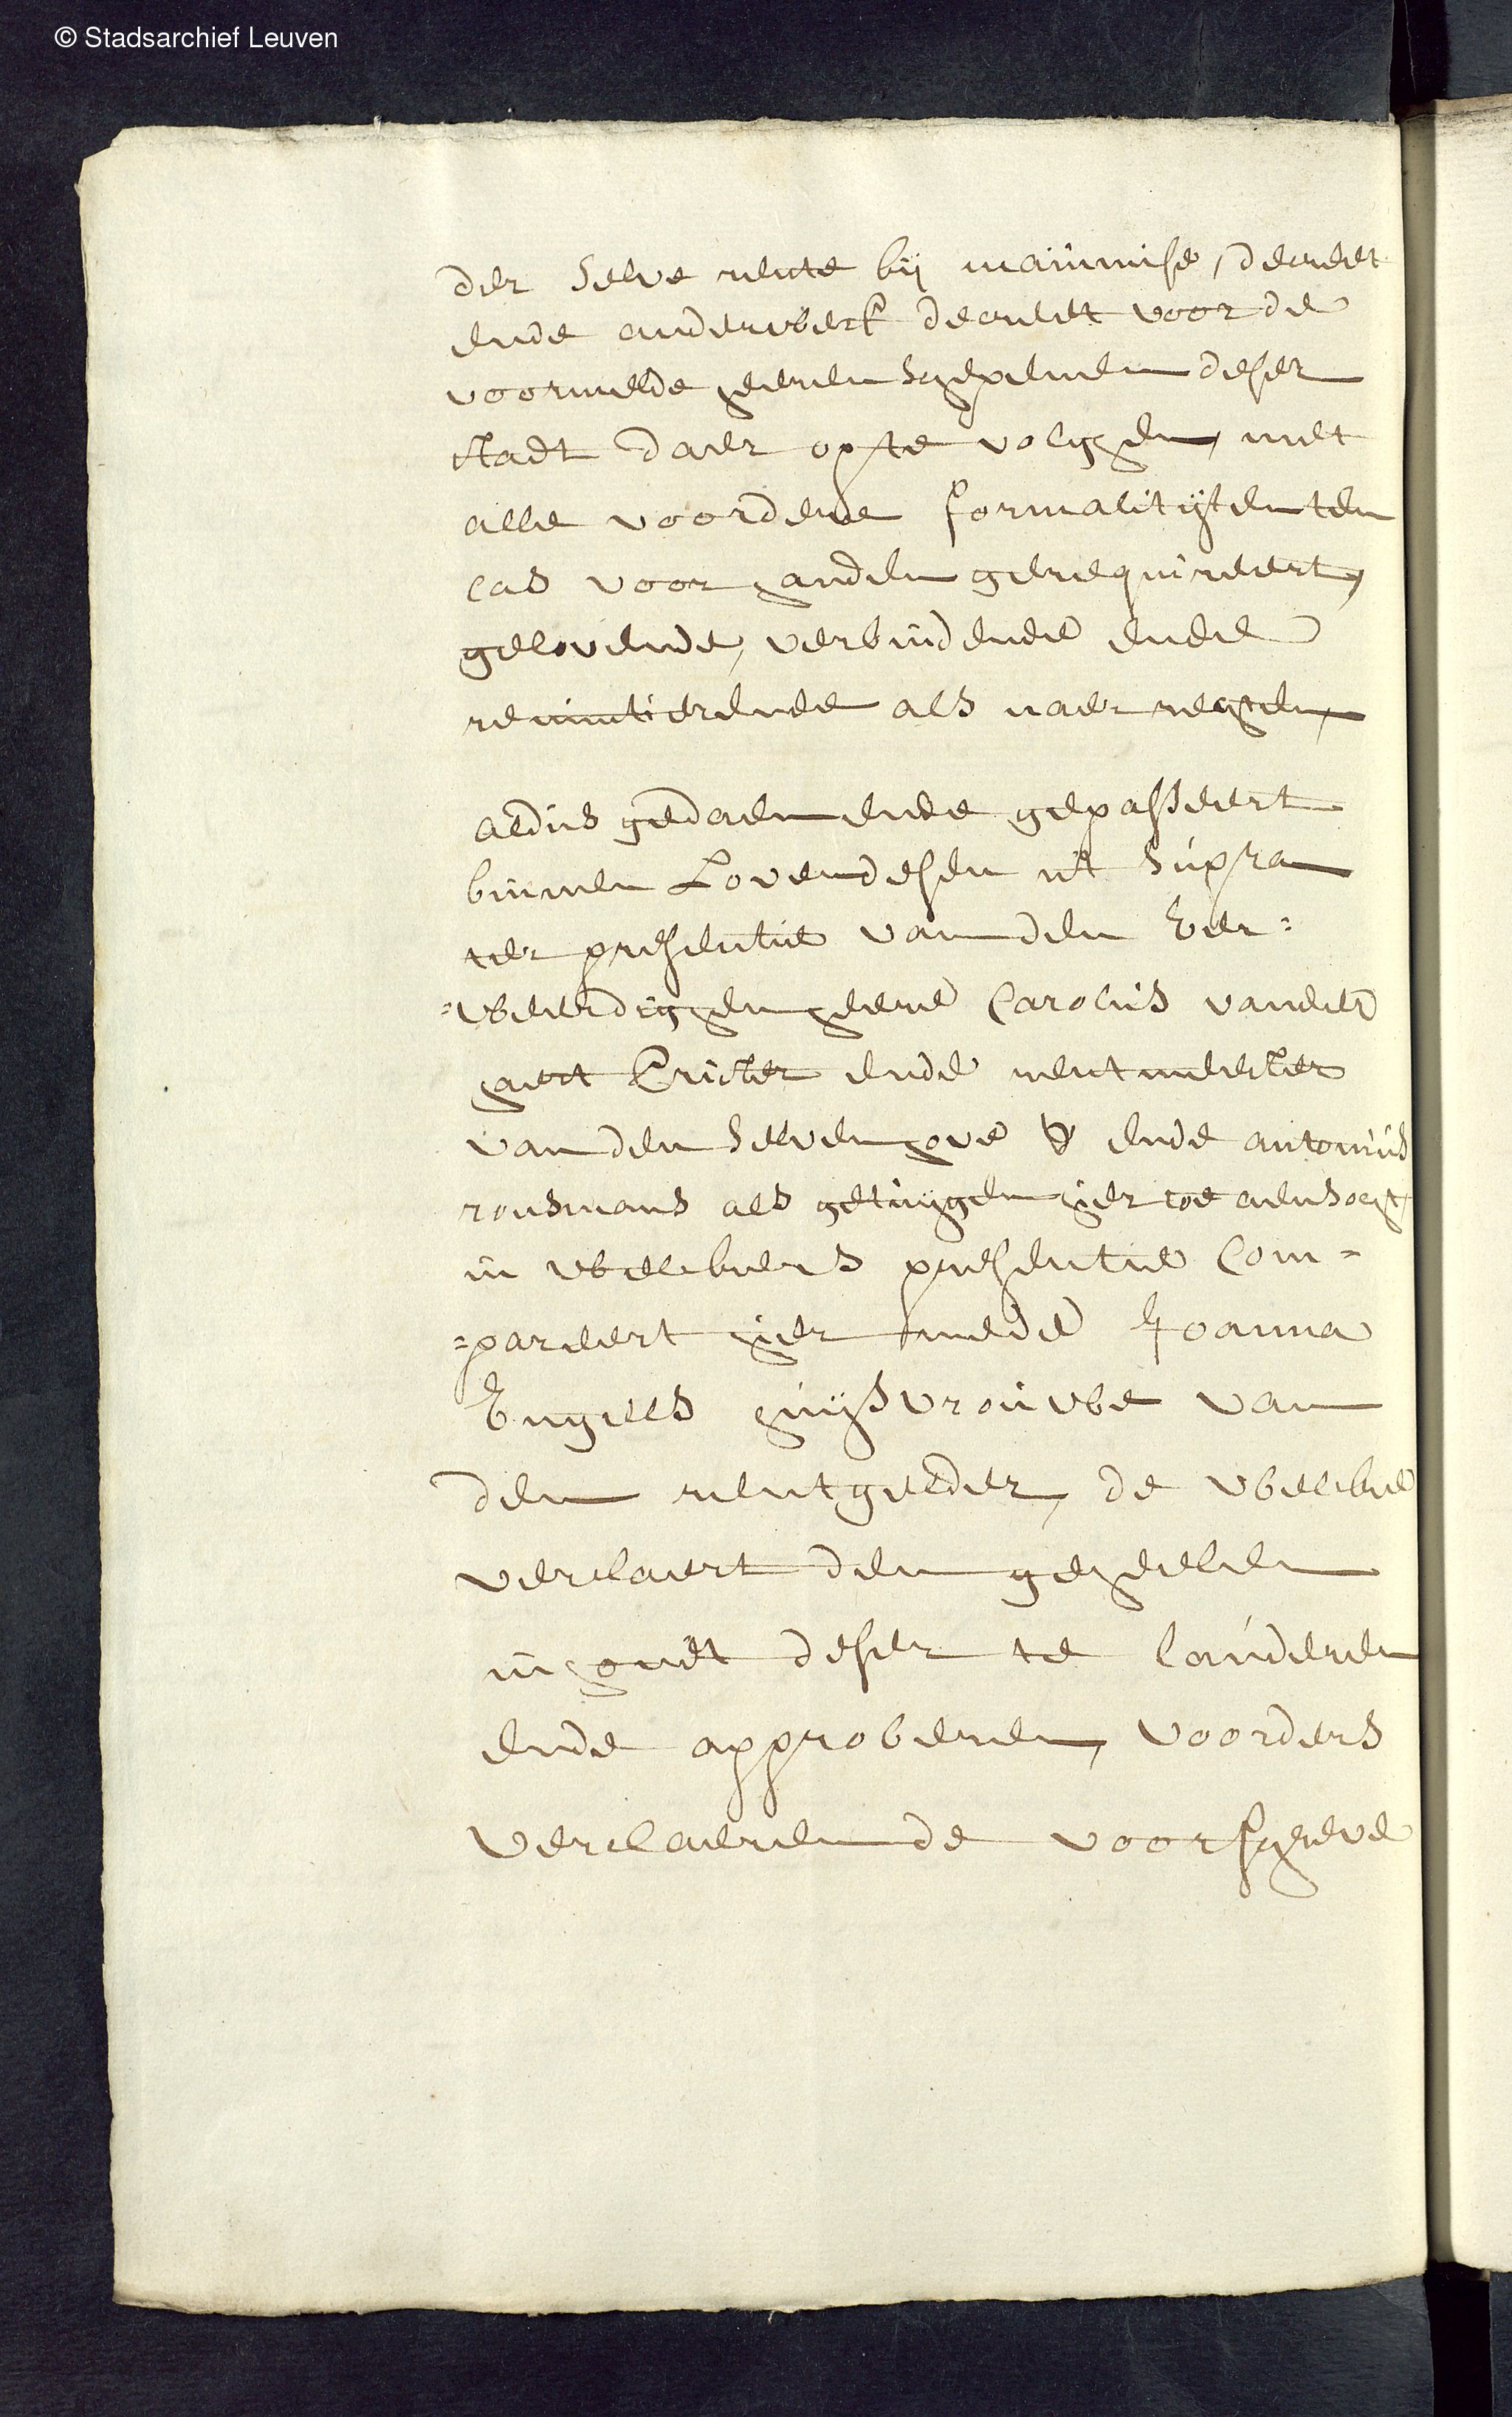 © Stadsarchief Leuven
der selve rente bij mainmise, decreet
ende anderwerk decreet voor de
voormelde heeren schepenen deser
stadt daer op te volghen, met
alle voordere formalitijten ten
cas voor handen gerequireert,
gelovende, verbindende ende
renuntierende als naer rechten,
aldus gedaen ende gepasseert
binnen Loven desen ut supra
ter presentie van den Eer=
=weerdighen heere Carolus vander
haert Pricter ende rentmeester
van den selven hove ende antonius
rousmans als getuijgen hier toe aensocht,
in welckers presentie Com=
=pareert hier mede Joanna
Engels huijsvrouwe van
den rentgelder, de welcke
verclaert den geheelen
inhoudt deser te lauderen
ende approberen, voorders
verclaeren de voorschreve